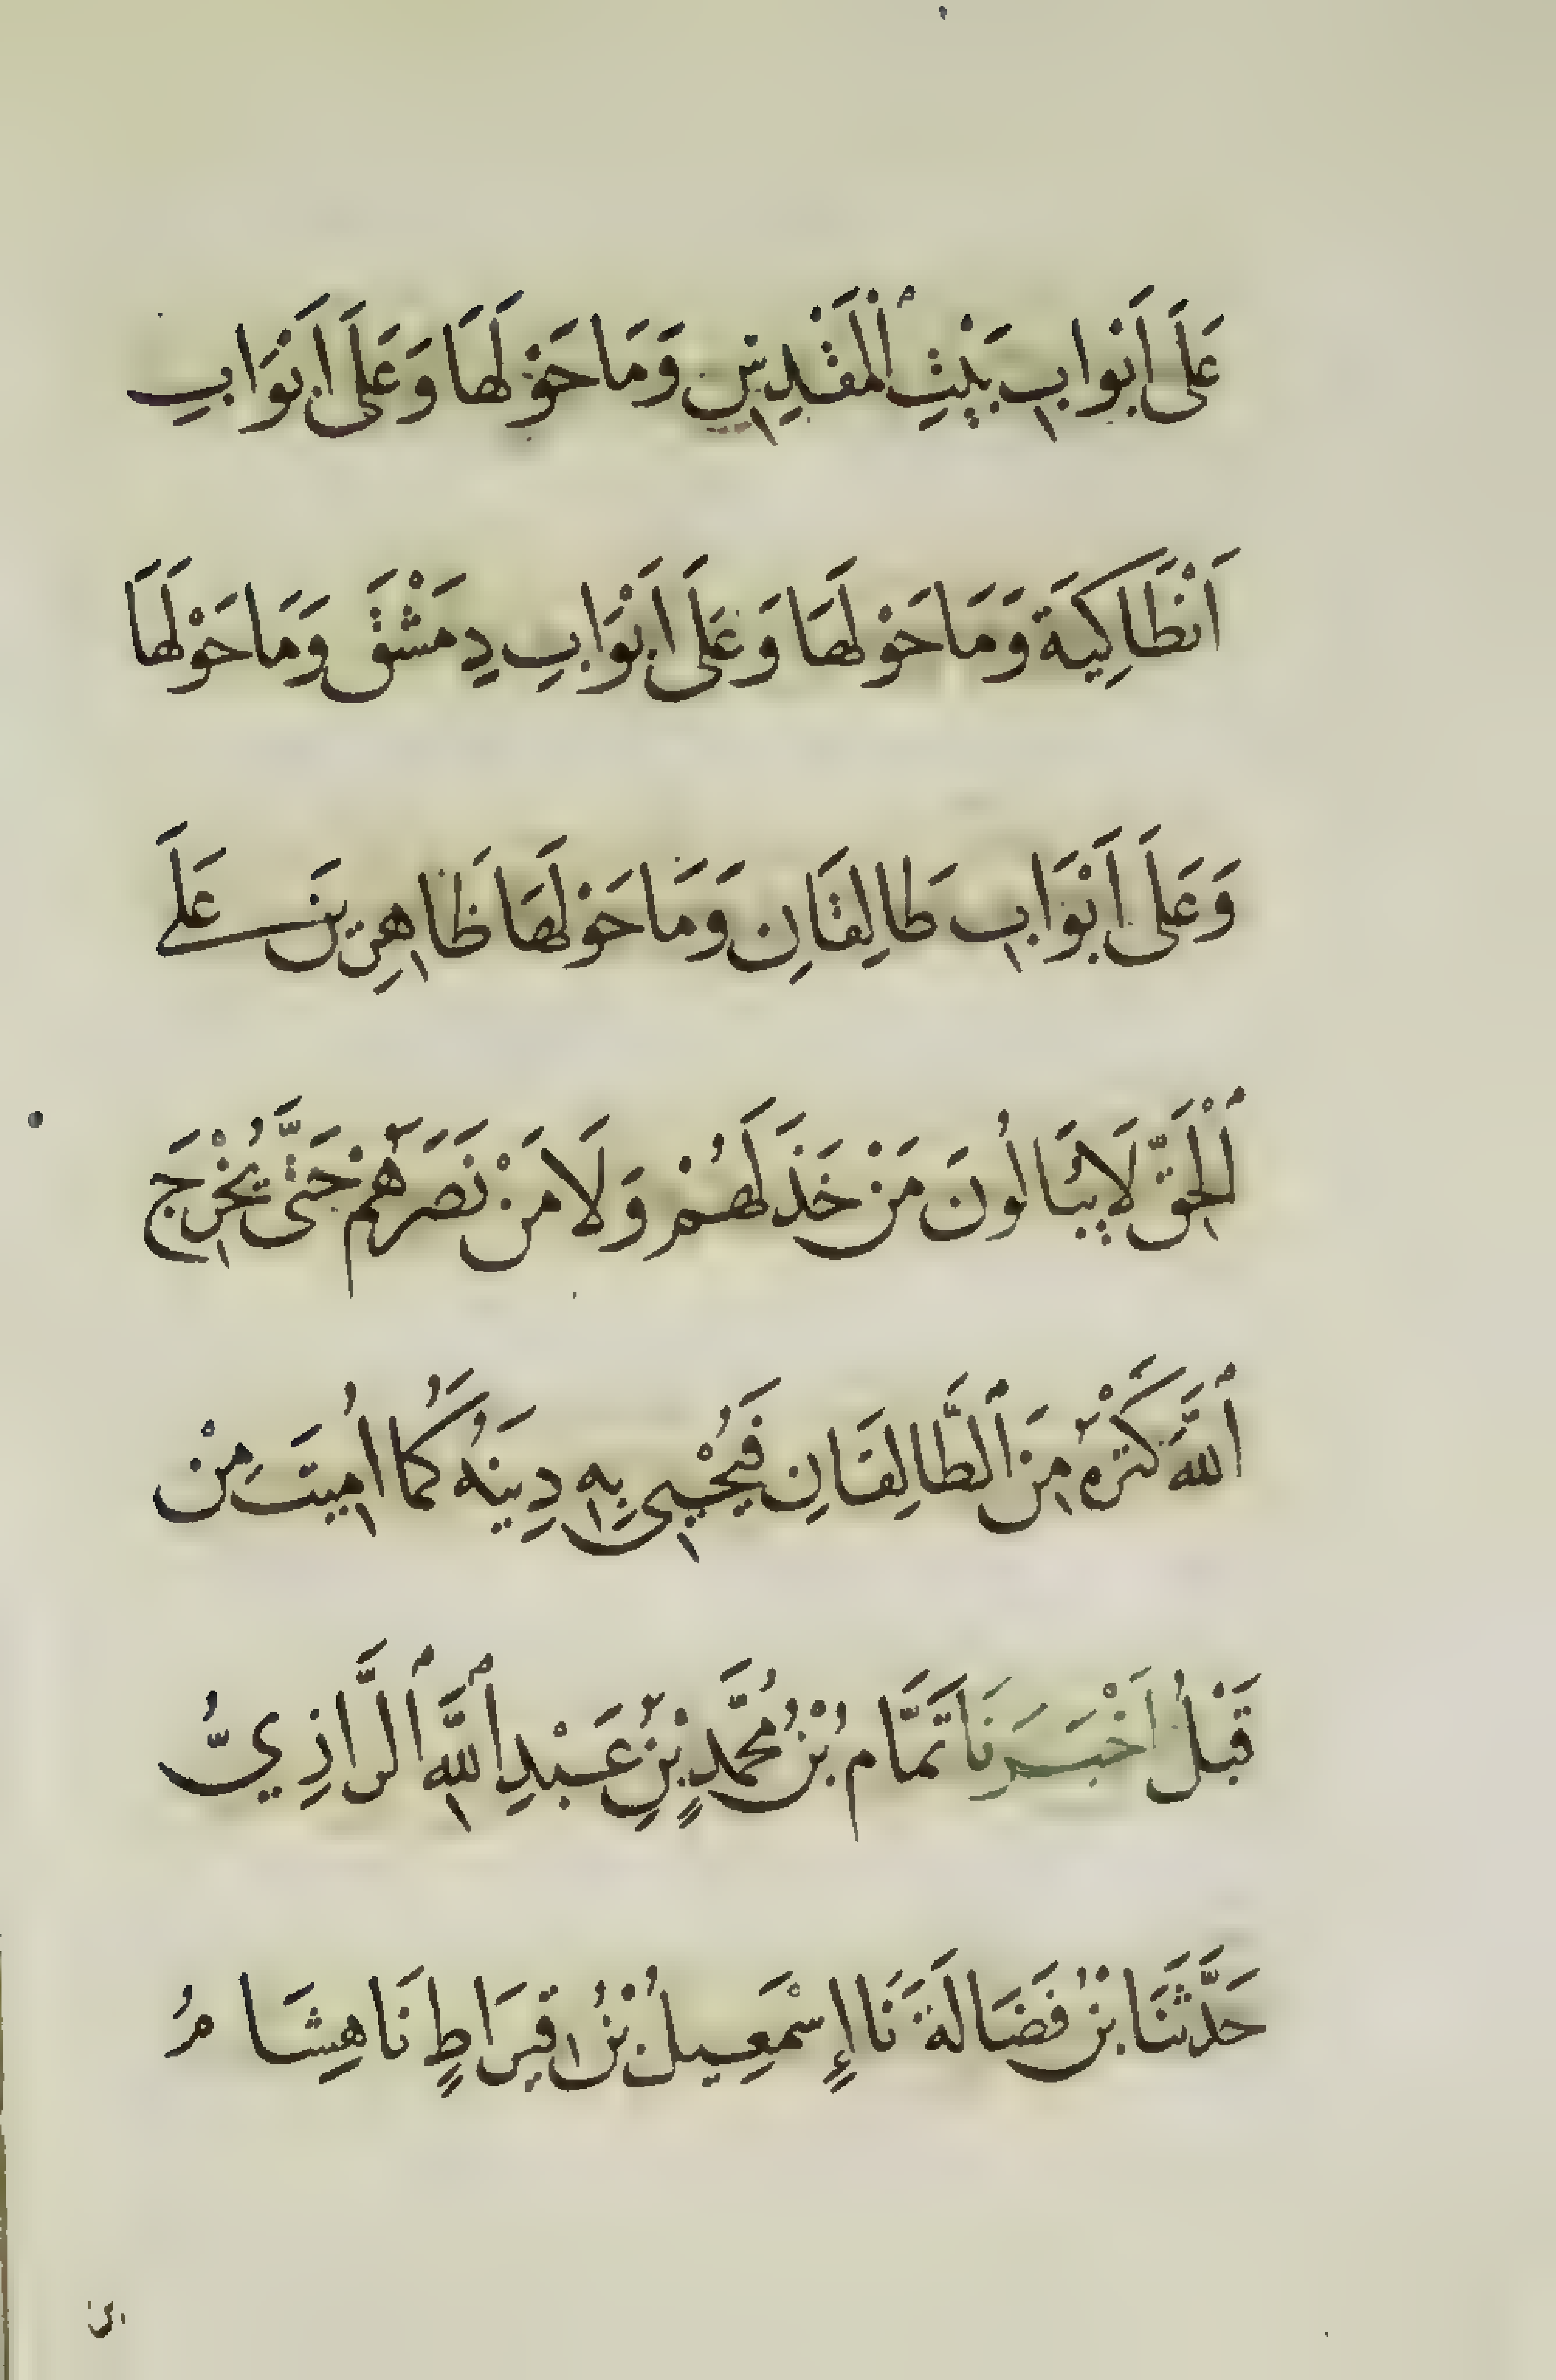 عَلَى اَبْوَابِ بَيْتِ ٱلْمَقْدِسِ وَمَا حَوْلَهَا وَعَلَى اَبْوَابِ
اَنْطَاكِيَةَ وَمَا حَوْلَهَا وَعَلَى اَبْوَابِ دِمَشْقَ وَمَا حَوْلَهَا
وَعَلَى اَبْوَابِ طَالِقَانِ وَمَا حَوْلَهَا ظَاهِرِينَ عَلَى
ٱلْحَقِّ لَا يُبَالُونَ مَنْ خَذَلَهُمْ وَلَا مَنْ نَصَرَهُمْ حَتَّى يُخْرِجَ
ٱللَّهُ كَنْزَهُ مِنَ ٱلطَّالِقَانِ فَيُحْيِيَ بِهِ دِينَهُ كَمَا اُمِيتَ مِنْ
قَبْلُ اَخْبَرَنَا تَمَّامُ بْنُ مُحَمَّدِ بْنِ عَبْدِ ٱللَّهِ ٱلرَّازِيُّ
حَدَّثَنَا بْنُ فَضَالَةَ نَا إِسْمَعِيلُ بْنُ قِيرَاطٍ نَا هِشَامُ
بن